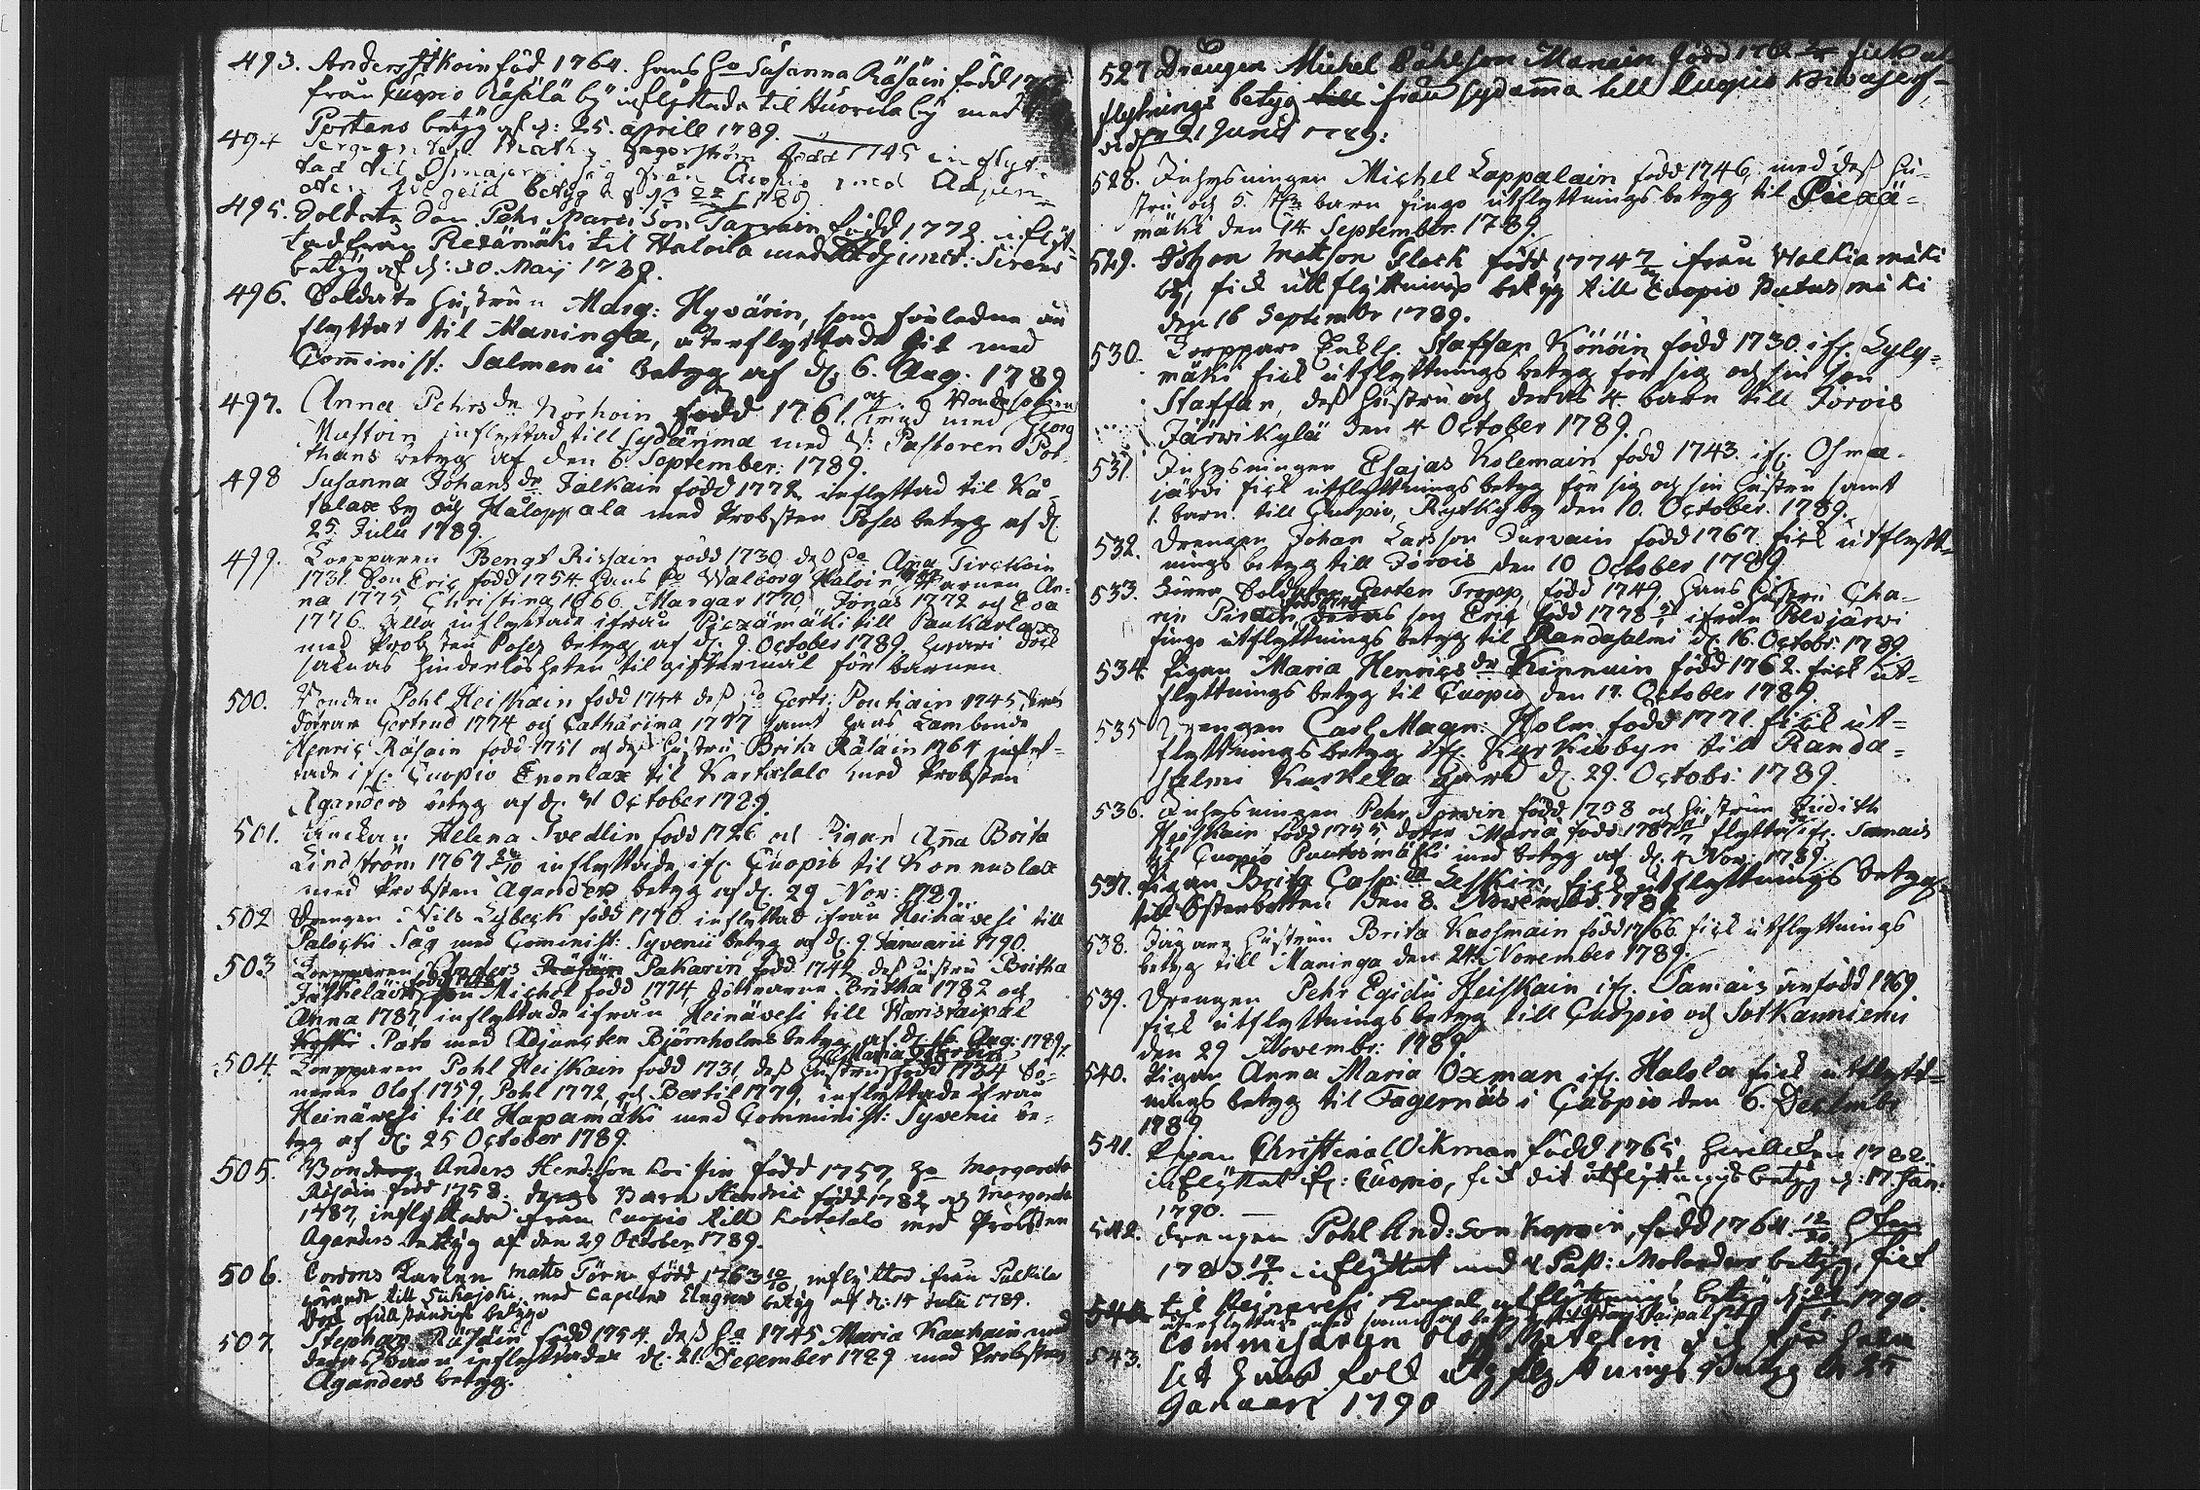 493. Anders Itkoin föd 1764. hans ho Susanna Räsäin född
från Cuopio Räsälä by inflyttade til Huorila by med
Portans betyg af d: 25. aprill 1789.
494 född 1745 inflyt-
tad til Osmajerfi by från Cuopio med Adjun-
495. Soldate Son Pehr Mattsson Tarvain född 1772. inflyt-
tad från Piexämäki til Haloila med Adjunct: Sirens
betyg af d: 30. Maij 1789.
496. Soldate hustrun Marg: Hyvärin, som förledne år
flyttat til Maninga, återflyttade hit med
Comminist: Salmenii betyg af d. 6. Aug. 1789
497. Anna Pehrsdr Korhoin född 1761. och Bondesonen Georg
Mustoin inflyttad till Sydänma med Pastoren Por-
thans betyg af den 6. September: 1789.
498 Susanna Johansdr Falkain född 1772 inflyttad til Kå-
salax by och Håloppala med Probsten Poses betyg af d.
25. Julii 1789.
499. Torpparen Bengt Rissain född 1730, des ho Anna Tirckoin
1731. Son Eric född 1754 hans ho Walborg Haloin barnen An-
na 1775 Christina 1766 Margar 1770, Jonas 1772 och Eva
1776. alla inflyttade ifrån Piexämäki till Paukarlax
med Probsten Poses betyg af d. 9. October 1789. hvari dock
saknas hinderlösheten til giftermål för barnen.
500. Bonden Pohl Heiskain född 1744 dess ho Gert: Pentiain 1745, deras
dottrar Gertrud 1774 och Catharina 1777 samt hans Landbonde
Henric Räsäin född 1751 och dess hustru Brita Räsäin 1764 inflyt-
tade ifr. Cuopio Enonlax til Kartalals med Probsten
Aganders betyg af d. 31 October 1789.
501. Enckan Helena Svedlin född 1726 och Pigan Anna Brita
Lindström 1767 inflyttade ifr Cuopio til Konnuslax
med Probsten Aganders betyg af d. 29. Nov: 1789.
502 Drengen Nils Lybeck född 1770 inflyttad ifrån Heinävesi till
Palocki Såg med Comminist: Syvenii betyg af d. 9. Januarii 1790.
503 Torpparen Anders Räsäin Pakarin född 1742 dess hustru Britha
Son Michel född 1774, döttrarne Britha 1782 och
Anna 1787, inflyttade ifrån Heinävesi till Waristaipal
Pato med Adjuncten Björnholms betyg af d. 16. Aug: 1789.
504. Torpparen Pohl Heiskain född 1731, dess hustru född 1734 Sö-
nerne Olof 1759, Pohl 1772, och Bertil 1779, inflyttade ifrån
Heinävesi till Hapamäki med Comminist: Syvenii be-
tyg af d. 25 October 1789.
505. Bonden Anders Hend:son född 1757, ho Margareta
Räsäin född 1758. deras Barn Hendric född 1782 och Margareta
1787, inflyttade ifrån Cuopio till Kartalals med Probsten
Aganders betyg af den 29 October 1789.
506. Matts Törn född 1763 inflyttad ifrån Pulkila
till Suhojoki med Capellans Elngrens betyg af d: 14 Julii 1789.
507. Stephan Räsäin född 1754. dess ho 1745 Maria Kauhain med
deras barn inflyttade d. 21. December 1789 med Probsten
Aganders betyg.
527 Drengen Michel Påhlson Manain född fick ut-
flyttnings betyg ifrån Sydämma till Cuopio
d. 21 Junii 1789:
528. Inhysningen Michel Lappalain född 1746, med dess hu-
stru och 5. barn fingo utflyttnings betyg til Piexä-
mäki den 14. September 1789.
529. Johan Mattson Flack född 1774 ifrån Walkiamäki
by, fick utflyttnings betyg till Cuopio Putusmäki
den 16 September 1789.
530. Torppare Enkl. Staffan Könöin född 1730. ifr. Lyly-
mäki fick utflyttnings betyg för sig och sin Son
Staffan, dess hustru och deras 4. barn till Jorois
Järwikylä den 4 October 1789.
531. Inhysningen Esajas Kolemain född 1743. ifr. Osma-
järvi fick utflyttnings betyg för sig och sin hustru samt
1. barn. till Cuopio, Rytky by den 10. October. 1789.
532. Drengen Johan Larsson Turvain född 1767. fick utflytt-
nings betyg till Jorois den 10 October 1789
533. Soldaten Gerten Tropp, född 1749, hans hustru Cha-
rin deras son Eric född 1778 ifrån Polvjärvi
fingo utflyttnings betyg til Randasalmi d. 16. Octobr. 1789.
534. Pigan Maria Henricsdr Kinnuin född 1762. fick ut-
flyttnings betyg til Cuopio den 17. October 1789.
535 Drengen Carl Magn: Holm född 1771. fick ut-
flyttnings betyg ifr. Kyrkiobyn till Randa-
salmi Kurkela Gård d. 29. Octobr: 1789.
536. Inhysningen Pehr Torvin född 1738 och hustrun Judith
Heiskain född 1745, dotter Maria född 1787 flyttar ifr. Samais
til Cuopio Puutosmäki med betyg af d. 4 Nov. 1789.
537. Pigan Brita Casp:dr Leskin, fick utflyttnings betyg
till Österbotten den 8. November. 1789
538. hustrun Brita Kaosmain född 1766 fick utflyttnings
betyg till Maninga den 24. November 1789.
539. Drengen Pehr Egidii Heiskain ifr. Samais by född 1769
fick utflyttnings betyg till Cuopio och Sotkanniemi
den 29 Novembr: 1789.
540. Pigan Anna Maria Oxman ifr. Halola fick utflytt-
nings betyg til Fagernäs i Cuopio den 6. Decembr
1789
541. Pigan Christina Wikman född 1765, hvilcken 1788
inflyttat ifr: Cuopio, fick dit utflyttnings betyg d: 17. Jan:
1790. —
542. Drengen Pohl And:son Kopoin, född 1764.
1783 inflyttat med V. Past: Molanders betyg, fick
til Heinävesi Kapel utflyttnings betyg 1790.
543. Commisaryn Olof fick för hela
sit hus folk utflyttnings betyg d 25
Januari 1790